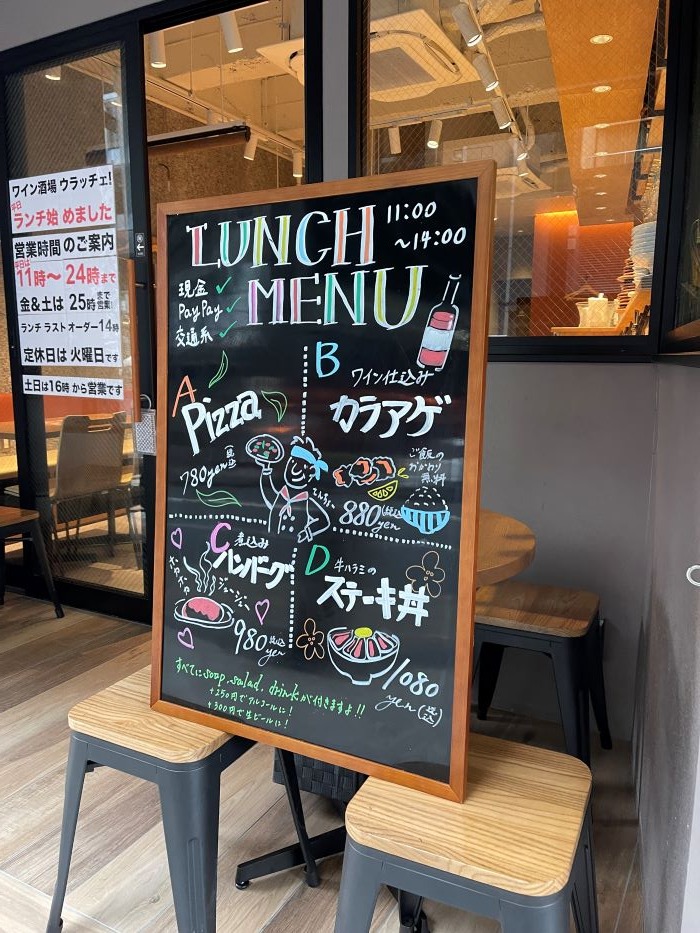 ワイン酒場 ウラッチェ!
平日
ランチ始めました
営業時間のご案内
平日は
11時〜24時まで
金&土は 25時まで営業!
ランチ ラスト オーダー14時
定休日は 火曜日です
土日は16時から営業です
LUNCH
MENU
11:00
〜14:00
現金 ✓
PayPay ✓
交通系 ✓
A
Pizza
780yen(税込)
B
ワイン仕込み
カラアゲ
ご飯の
おかわり
無料
880(税込)
yen
C 煮込み
ハンバーグ
ジュージュー
980税込
yen
D 牛ハラミの
ステーキ丼
1080
yen(税込)
すべてにsoup.salad.drinkが付きますよ!!
+250円でアルコールに!
+300円で生ビールに!